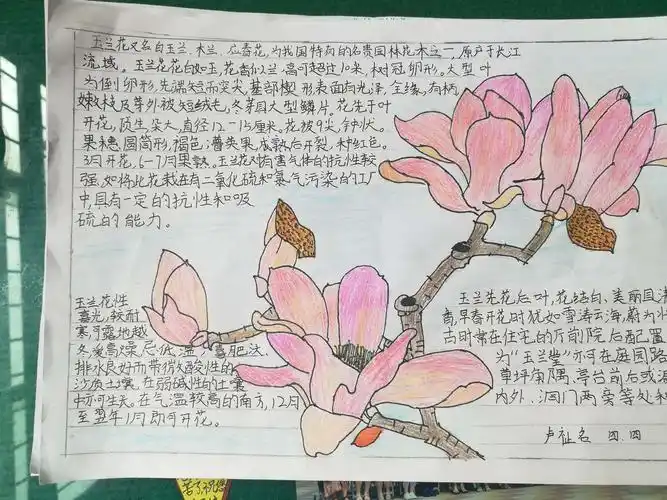 玉兰花又名白玉兰、木兰、应春花,为我国特有的名贵园林花木之一,原产于长江
流域。玉兰花花白如玉,花香似兰,高可超过10米,树冠卵形。大型叶
为倒卵形,先端短而突尖,基部楔形表面有光泽,全缘,有柄,
嫩枝及芽外被短绒毛,冬芽具大型鳞片。花先于叶
开花,顶生朵大,直径12—15厘米。花被9尖,钟状。
果穗圆筒形,褐色;蓇葖果,成熟后开裂,种红色。
3月开花,6—7月果熟。玉兰花对有害气体的抗性较
强,如将此花栽在有二氧化硫和氯气污染的工厂
中,具有一定的抗性和吸
硫的能力。
玉兰花性
喜光,较耐
寒,可露地越
冬,爱高燥,忌低湿,喜肥沃、
排水良好而带微酸性的
沙质土壤,在弱碱性的土壤
中亦可生长。在气温较高的南方,12月
至翌年1月即可开花。
玉兰先花后叶,花洁白、美丽且清
,早春开花时犹如雪涛云海,蔚为
古时常在住宅的厅前院后配置
为“玉兰堂”亦可在庭园路
草坪角隅、亭台前后或
内外、洞门两旁等处
卢祉名 四.四